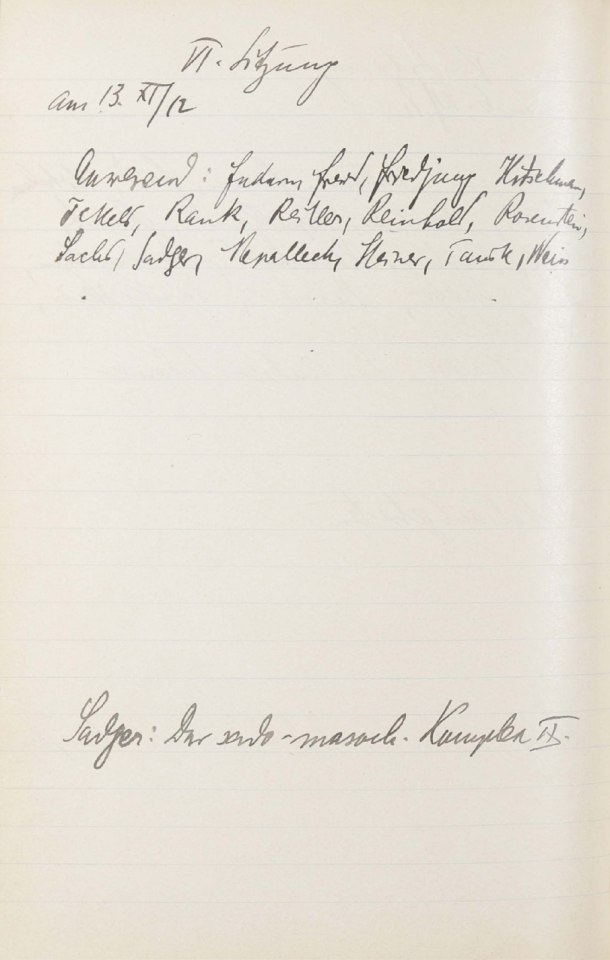 VI. Sitzung
am 13. XI/12
Anwesend: Federn, Freud, Friedjung, Hitschmann,
Jekels, Rank, Reitler, Reinhold, Rosenstein,
Sachs, Sadger, Nepalleck, Steiner, Tausk, Weiss
Sadger: Der sado-masoch. Komplex II.